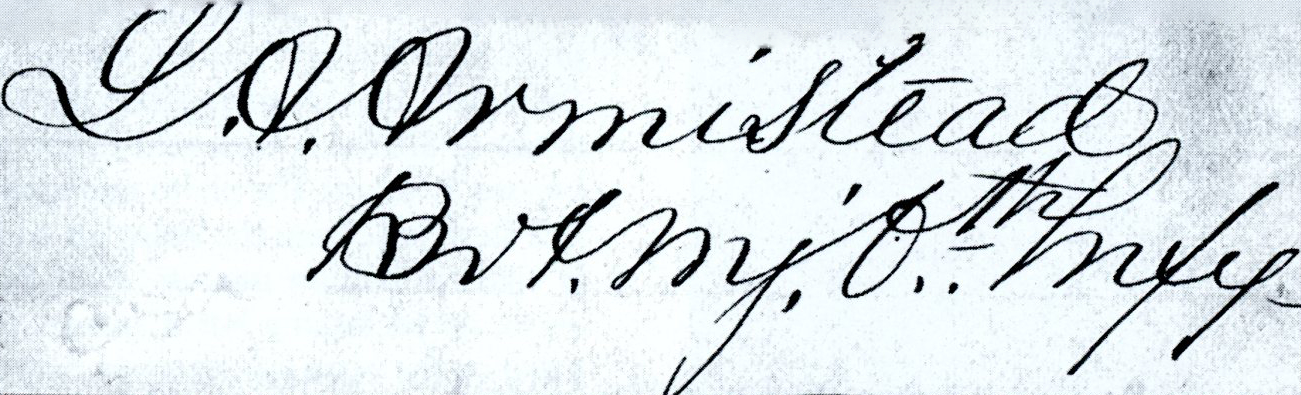 L. A. Armistead
Bvt. Mj. 6.th Infy